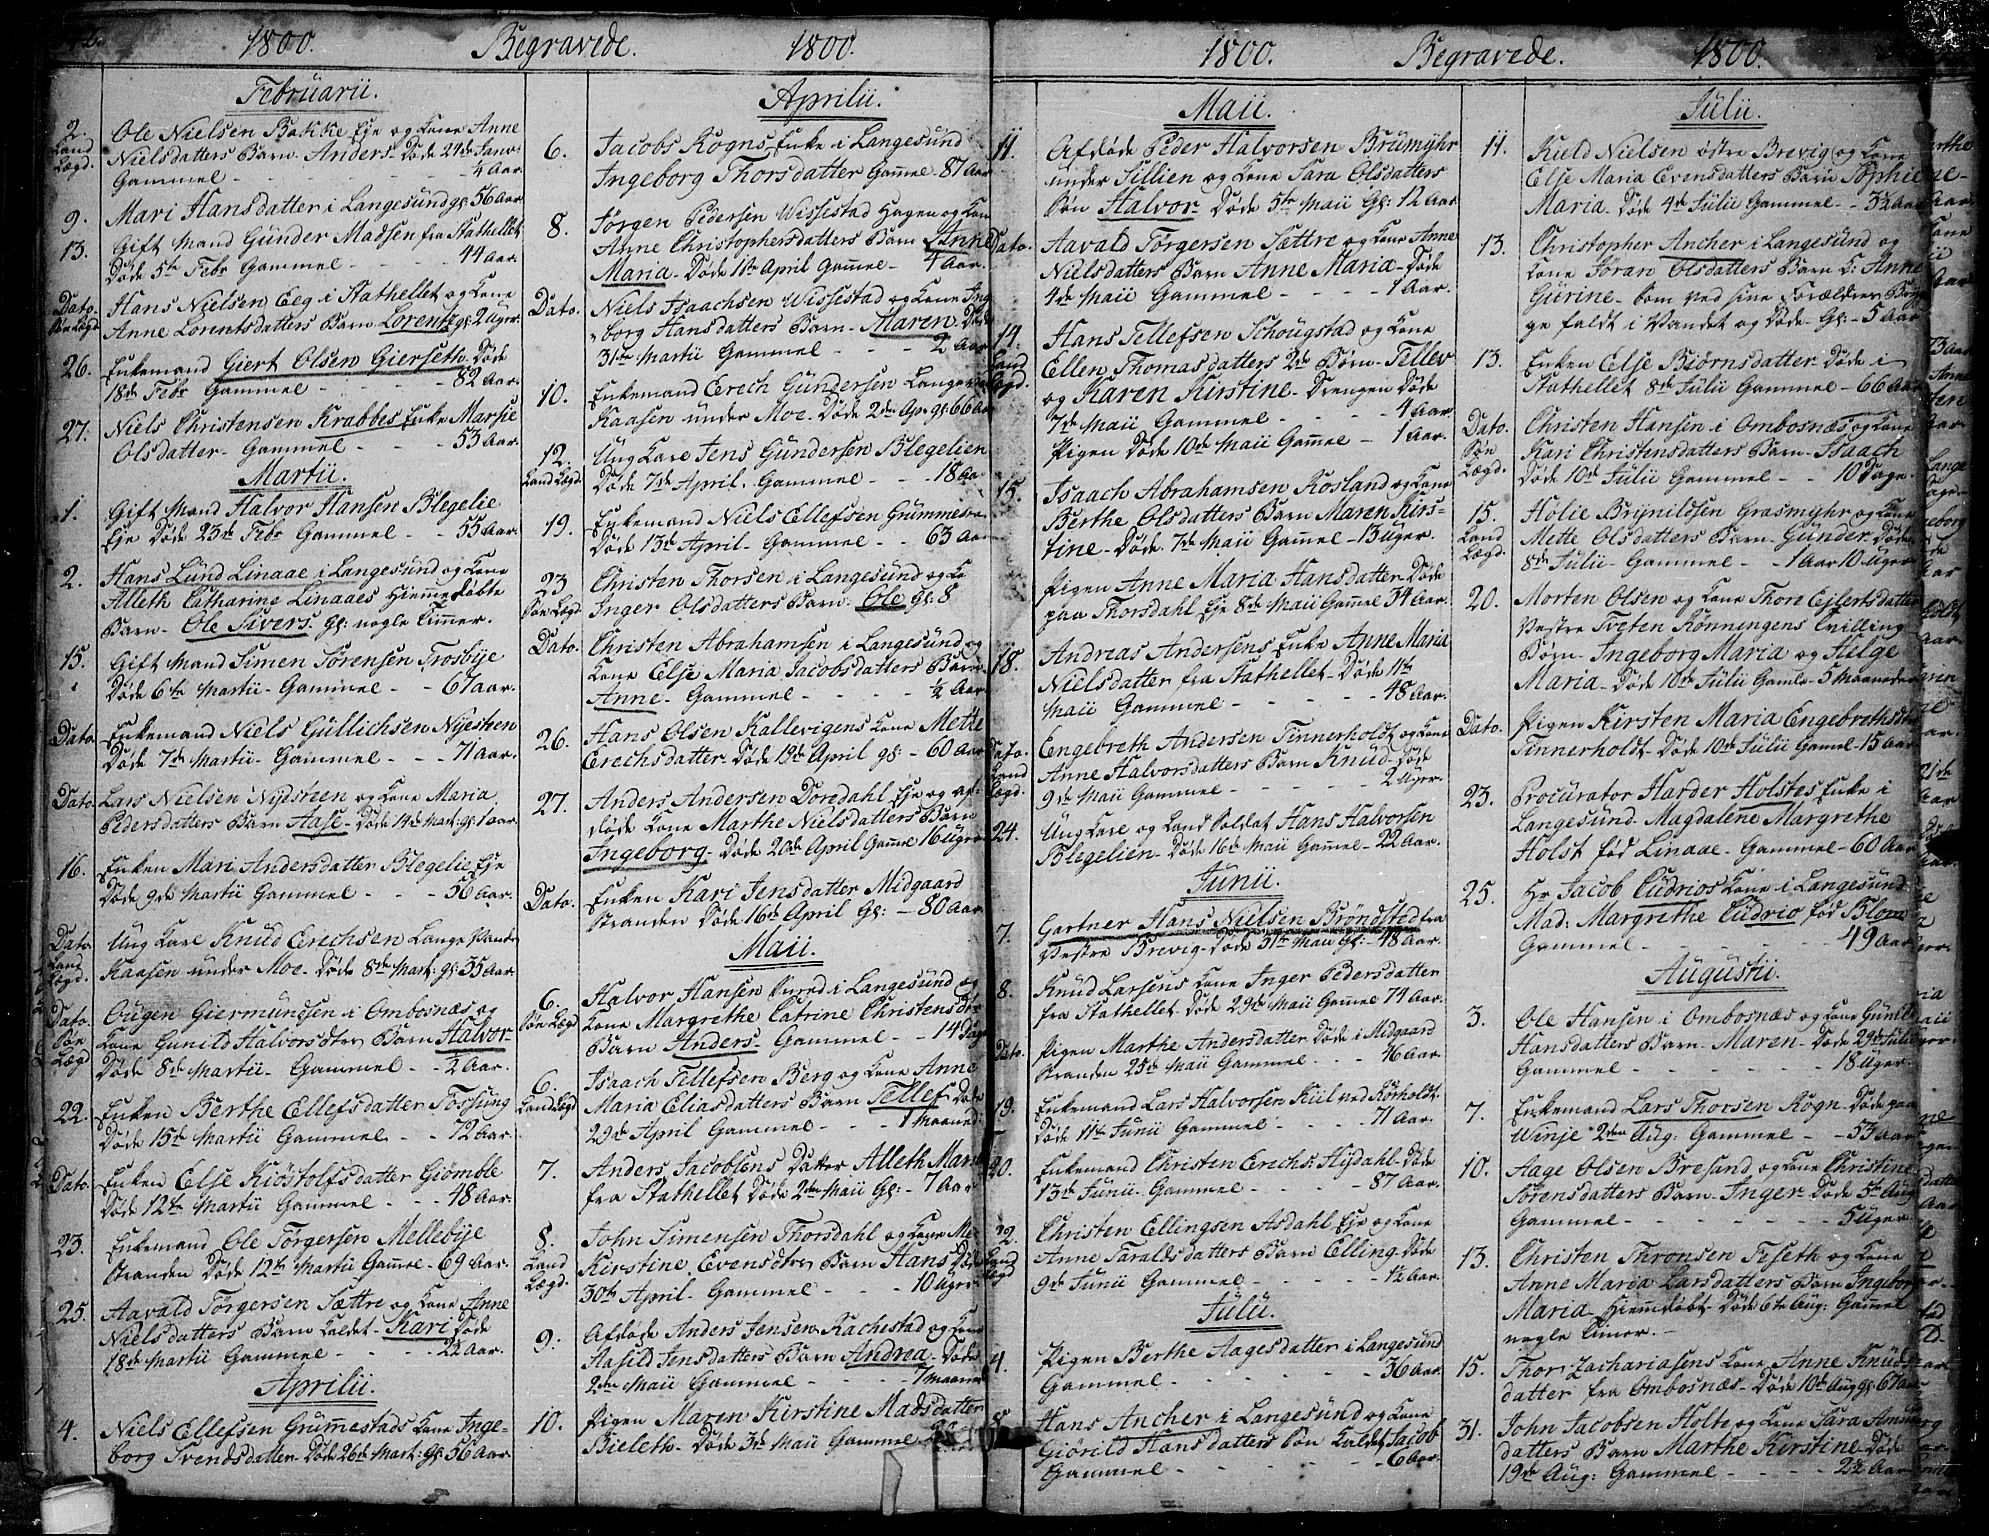 1800. Begravede. 1800.
Februarii.
2. Ole Nielsen Bakke Eje og Kone Anne
Land Lægd. Nielsdatters Barn Anders. Døde 24de Janr
Gammel - - - - ¼ Aar.
9. Mari Hansdatter i Langesund gl: 56 Aar.
13. Gift Mand Gunder Madsen fra Stathellet
Døde 5te Febr Gammel - - 44 Aar.
Dato. Hans Nielsen Eeg i Stathellet og Kone
Søe Lægd Anne Lorentsdatters Barn Lorentz gl: 2 Uger.
26. Enkemand Giert Olsen Gierseth. Døde
18de Febr Gammel - - - 82 Aar.
27. Niels Christensen Krabbes Enke Marthe
Olsdatter - Gammel - - - 53 Aar.
Martii.
1. Gift Mand Halvor Hansen Blegelie
Eje Døde 23de Febr Gammel - - 53 Aar.
2. Hans Lund Linaae i Langesund og Kone
Alleth Catharine Linaaes Hiemmedøbte
Barn - Ole Sivers. gl: nogle Timer.
15. Gift Mand Simen Sørensen Trosbije
Døde 6te Martii - Gammel - - 67 aar.
Dato Enkemand Niels Gullichsen Nyesteen
Døde 7de Martii - Gammel - - - 71 aar.
Dato. Lars Nielsen Nydsteen og Kone Maria
Pedersdatters Barn Aase - Døde 14de Mart: gl: 1 aar.
16. Enken Mari Andersdatter Blegelie Eje
Døde 9de Martii Gammel - - - 56 Aar.
Dato. Ung Karl Knud Erichsen Lange Vand
Land Lægd. Kaasen under Moe. Døde 8de Mart: gl: 35 Aar.
Dato. Ougen Giermundsen i Ombosnæs og
Søe Lægd Kone Gunild Halvorsdtrs Barn Halvor -
Døde 8de Martii - Gammel - - ½ Aar.
22. Enken Berthe Ellefsdatter Tossung
Døde 15de Martii Gammel - - 72 Aar.
Dato. Enken Else Kiøstolfsdatter Giømle
Døde 12te Martii Gammel - - 48 Aar.
23. Enkemand Ole Torgersen Mellebye
Stranden Døde 12te Martii Gammel - 69 Aar.
25. Aavald Torgersen Sættre og Kone Anne
Nielsdatters Barn kaldet - Kari Døde
18de Martii Gammel - - - 2½ Aar.
Aprilii.
4. Niels Ellefsen Grummestads Kone Inge-
borg Svendsdatter - Døde 26de Mart: gl: 56 Aar.
Aprilii.
6. Jacobs Rogns Enke i Langesund
Ingeborg Thorsdatter Gammel - 87 Aar
8. Jørgen Pedersen Wissestad Hagen og Kone
Anne Christophersdatters Barn Anne
Maria - Døde 1ste April Gammel - 4 Aar.
Dato. Niels Isaachsen Wissestad og Kone Ing
borg Hansdatters Barn - Maren - Døde
31te Martii Gammel - - - 2 Aar
10. Enkemand Erich Gundersen Langevan
Kaasen under Moe. Døde 2den Apr gl: 66 Aar
12. Ung Karl Jens Gundersen Blegelien
Land Lægd. Døde 7de April. Gammel - - - 18 Aar
19. Enkemand Niels Ellefsen Grummesta
Døde 13de April - Gammel - - 63 Aar
23 Christen Thorsen i Langesund og Ko
Søe Lægd. Inger Olsdatters Barn: Ole gl: 8
Dato. Christen Abrahamsen i Langesund og
Kone Else Maria Jacobsdatters Barn
Anne - Gammel - - - - ½ Aar.
26. Hans Olsen Kallevigens Kone Mette
Erichsdatter - Døde 19de April gl - 60 Aar
27. Anders Andersen Dordahl Eje og af-
døde Kone Marthe Nielsdatters Barn
Ingeborg - Døde 20de April Gamm 16 Uger
Dato. Enken Kari Jensdatter Midgaard
Stranden Døde 16de April Gl: - 80 Aar
Maii.
6. Halvor Hansen i Langesund og
Søe Lægd Kone Margrethe Catrine Christensdtrs
Barn Anders - Gammel - - 14 Dage
6. Isaach Tellefsen Berg og Kone Anne
Land Lægd Maria Eliasdatters Barn Tellef Døde
29de April Gammel - - - 1 Maaned
7. Anders Jacobsens Datter Alleth Maria
fra Stathellet Døde 2den Maii Gl: - 7 Aar
8. John Simensen Thorsdahl og Kone Ma
Land Lægd. Kirstine Evensdtrs Barn Hans Døde
30te April - Gammel - - - 10 Uger
9. Afdøde Anders Jensen Rachestad og Kone
Aasild Jensdatters Barn Andrea - Døde
2den Maii Gammel - - - - 7 Maaneder
10. Pigen Maren Kirstine Madsdatter
Bieleth - Døde 3de Maii Gammel
1800. Begravede. 1800.
Maii.
11. Afdøde Peder Halvorsen Brumyhr
under Tillien og Kone Sara Olsdatters
Søn Halvor - Døde 5te Maii Gl: 12 Aar.
Dato. Aavald Torgersen Sættre og Kone Anne
Nielsdatters Barn Anne Maria - Døde
4de Maii Gammel - - - - 1 Aar.
14. Hans Tellefsen Schougstad og Kone
Land Lægd. Ellen Thomasdatters 2de Børn - Tellev
og Karen Kirstine - Drengen Døde
7de Maii Gammel - - - - 4 Aar.
Pigen Døde 10de Maii Gammel - 1 Aar.
15. Isaach Abrahamsen Rosland og Kone
Berthe Olsdatters Barn Maren Kirs-
tine - Døde 7de Maii Gammel - 13 Uger.
Pigen Anne Maria Hansdatter - Døde
paa Thorsdahl Eje 8de Maii Gammel 34 Aar.
18. Andreas Andersens Enke Anne Maria
Nielsdatter fra Stathellet - Døde 11te
Maii Gammel - - - - 48 Aar.
Dato. Engebreth Andersen Tinnerholdt og Kone
Land Lægd. Anne Halvorsdatters Barn Knud - Døde
9de Maii Gammel - - - - 2 Uger.
24. Ung Karl og Land Soldat Hans Halvorsen
Blegelien - Døde 16de Maii Gammel - 22 Aar.
Junii.
7. Gartner Hans Nielsen Brøndsted fra
Vestre Brevig - Døde 31te Maii gl: - 48 Aar.
8. Knud Larsens Kone Inger Pedersdatter
fra Stathellet Døde 29de Maii Gammel 74 Aar.
Dato. Pigen Marthe Andersdatter Døde i Midgaard
Stranden 25de Maii Gammel - - - 46 Aar.
19. Enkemand Lars Halvorsen Kiil ved Rørholdt.
Døde 11te Junii Gammel - - - - 71 Aar.
20. Enkemand Christen Erichs: Hydahl - Døde
13de Junii - Gammel - - - - 87 Aar.
22. Christen Ellingsen Asdahl Eje og Kone
Land Lægd Anne Taraldsdatters Barn Elling - Døde
9de Junii Gammel - - - - 1½ Aar.
Julii.
4. Pigen Berthe Aagesdatter i Langesund
Gammel - - - - - - 36 Aar.
Hans Ancher i Langesund og Kone
Giørild Hansdatters Søn kaldet Jacob
Gammel - - - - - - 6 Aar.
Julii.
11. Kield Nielsen østre Brevig og Kone
Else Maria Evensdatters Barn Sophie
Maria - Døde 4de Julii Gammel - - 5½ Aar
13. Christopher Ancher i Langesund og
Kone Jøran Olsdatters Barn K: Anne
Gurine - som ved sine Forældres Bryg
ge faldt i Vandet og Døde - Gl: - 5 Aar
13. Enken Else Biørnsdatter - Døde i
Stathellet 8de Julii Gammel - 66 Aar.
Dato. Christen Hansen i Ombosnæs og Kone
Søe Lægd. Kari Christensdatters Barn - Isaach
Døde 10de Julii Gammel - - 10 Dage
15. Holie Brynildsen Grasmyhr og Kone
Land Lægd. Mette Olsdatters Barn - Gunder - Døde
8de Julii - Gammel - - 1 Aar 10 Uger
20. Morten Olsen og Kone Thore Ejlertsdatter
Vestre Tveten Rønningens Tvilling
Børn - Ingeborg Maria og Helge
Maria - Døde 10de Julii Gamle - 5 Maaneder
Dato. Pigen Kirsten Maria Engebrethsdtr
Tinnerholdt - Døde 10de Julii Gamel - 15 Aar
23. Procurator Harder Holstes Enke i
Langesund - Magdalene Margrethe
Holst fød Linaae - Gammel - 60 Aar
25. Hr Jacob Cudrios Kone i Langesund
Mad: Margrethe Cudrio fød Blom
Gammel - - - - - 49 Aar
Augustii.
3. Ole Hansen i Ombosnæs og Kone Gunild
Hansdatters Barn - Maren - Døde 29de Julii
Gammel - - - - - 18 Uger.
7. Enkemand Lars Thorsen Rogn - Døde paa
Winje 2den Aug: Gammel - - 53 Aar
10. Aage Olsen Bresand og Kone Christine
Sørensdatters Barn - Inger - Døde 5te Aug
Gammel - - - - - 5 Uger
13. Christen Thronsen Tiseth og Kone
Anne Maria Larsdatters Barn Ingeborg
Maria - Hiemdøbt - Døde 6te Aug: Gammel
nogle Timer. -
15. Thor Zachariasens Kone Anne Knuds
datter fra Ombosnæs - Døde 10de Aug gl: 67 Aar
31. John Jacobsen Holte og Kone Sara Amun
datters Barn Marthe Kirstine - Døde
19de Aug: Gammel - - - - 2½ Aar